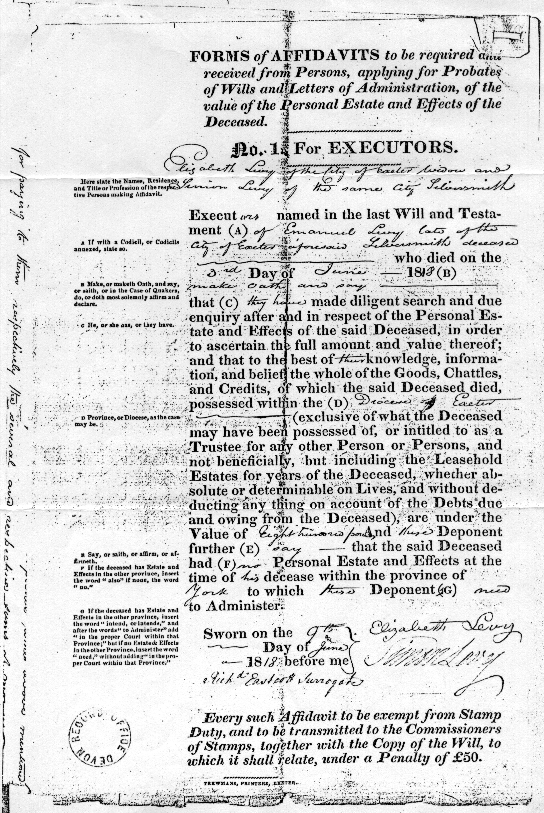 FORMS of AFFIDAVITS to be required and
received from Persons, applying for Probates
of Wills and Letters of Administration, of the
value of the Personal Estate and Effects of the
Deceased.
No. 1. For EXECUTORS.
Elizabeth Levy of the City of Exeter widow and
Here state the Names, Residence, and Title or Profession of the respective Persons making Affidavit.
Simon Levy of the same City Silversmith
Executors named in the last Will and Testa-
ment (A) of Emanuel Levy late of the
A If with a Codicil, or Codicils annexed, state so.
City of Exeter aforesaid Silversmith deceased
who died on the
3rd Day of June 1818 (B)
B Make, or maketh Oath, and say, or saith, or in the Case of Quakers, do, or doth most solemnly affirm and declare.
make oath and say
that (C) they have made diligent search and due
C He, or she has, or they have.
enquiry after and in respect of the Personal Es-
tate and Effects of the said Deceased, in order
to ascertain the full amount and value thereof;
and that to the best of their knowledge, informa-
tion, and belief the whole of the Goods, Chattles,
and Credits, of which the said Deceased died,
possessed within the (D) Diocese of Exeter
D Province, or Diocese, as the case may be.
(exclusive of what the Deceased
may have been possessed of, or intitled to as a
Trustee for any other Person or Persons, and
not beneficially, but including the Leasehold
Estates for years of the Deceased, whether ab-
solute or determinable on Lives, and without de-
ducting any thing on account of the Debts due
and owing from the Deceased), are under the
Value of Eight hundred pounds And these Deponent
E Say, or saith, or affirm, or affirmeth.
further (E) say that the said Deceased
F If the deceased has Estate and Effects in the other province, insert the word "also" if none, the word "no."
had (F) no Personal Estate and Effects at the
time of his decease within the province of
York to which these Deponent (G) need
G If the deceased has Estate and Effects in the other province, insert the word "intend, or intends," and after the words "to Administer" add "in the proper Court within that Province;" but if no Estate and Effects in the other Province, insert the word "need," without adding "in the proper Court within that Province."
to Administer.
Sworn on the 9th
Day of June
1818 before me
Elizabeth Levy
Simon Levy
Richd Eastcott Surrogate
Every such Affidavit to be exempt from Stamp
Duty, and to be transmitted to the Commissioners
of Stamps, together with the Copy of the Will, to
which it shall relate, under a Penalty of £50.
TREWMANS, PRINTERS, EXETER.
DEVON RECORD OFFICE
for paying to them respectively the several and respective sums